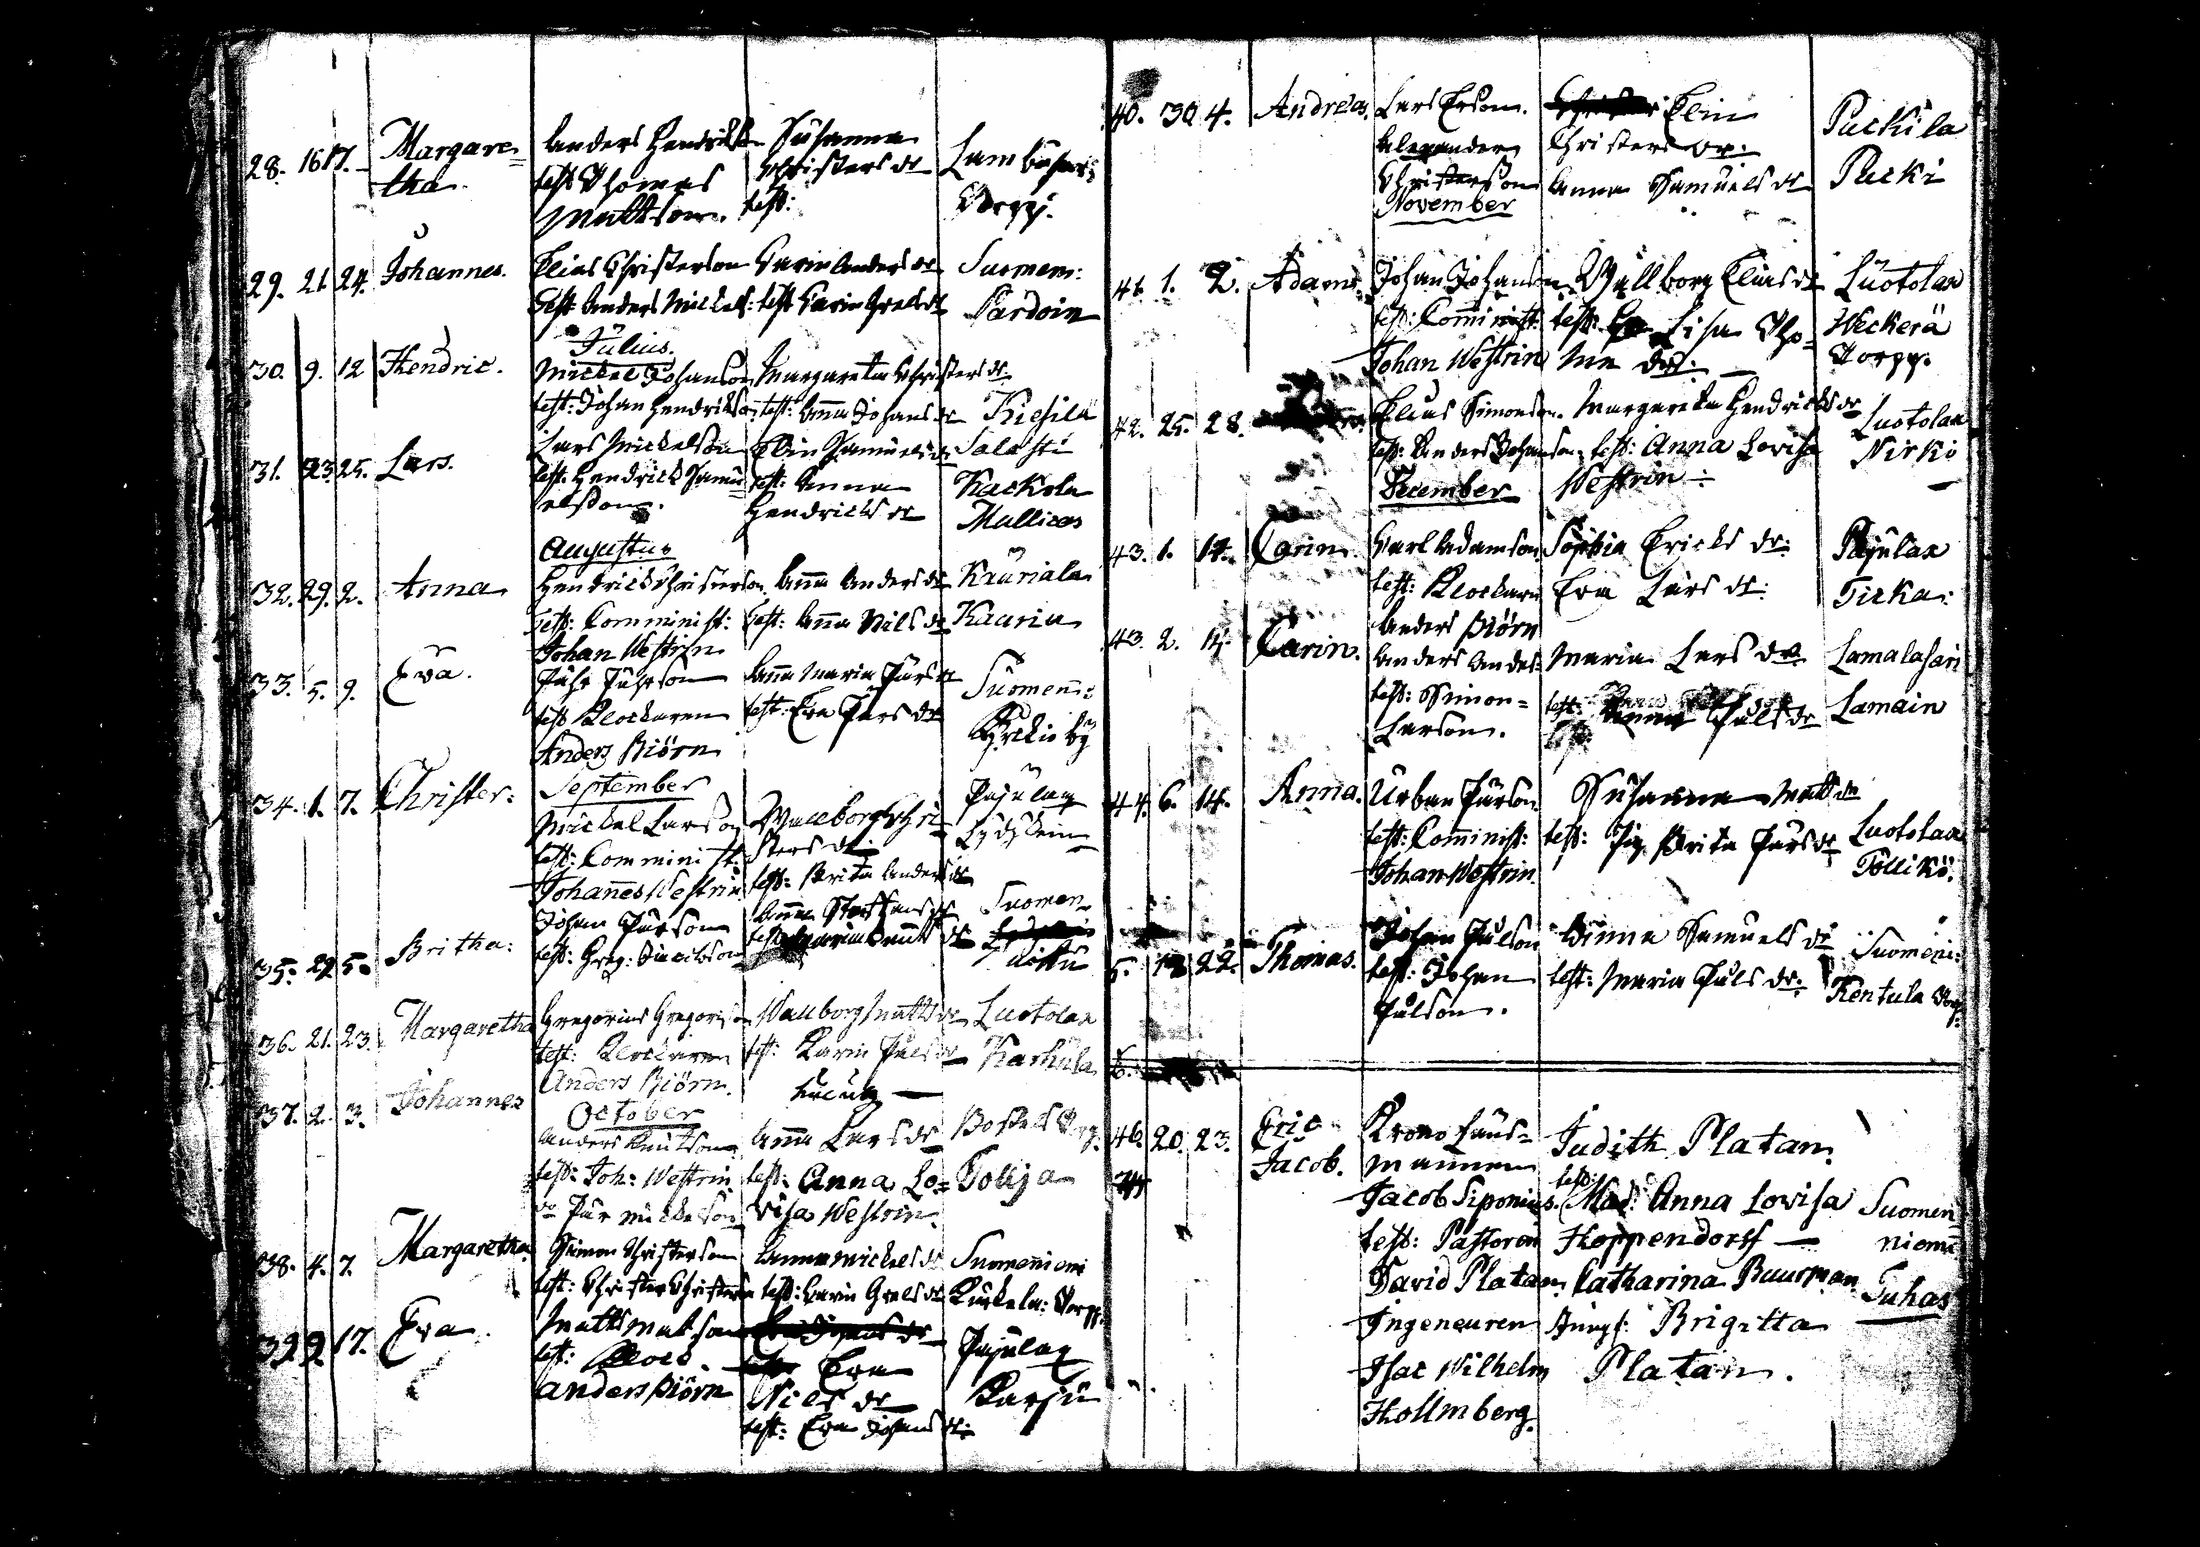 28. 16 17. Margare=
tha
Anders Hendrickson
test Thomas
Mattson.
Susanna
Christers dr
test:
Lambusari
Torpp.
29. 21 24. Johannes.
Elias Christerson
Test Anders Mickels:
Carin Anders dr
test Carin Grels dr
Suomeni:
Pardoin
Julius.
30. 9. 12 Hendric.
Mickel Johanson
test: Johan Hendrickson
Margareta Christers dr
test: Anna Johans dr
Kiesilä
31. 23 25. Lars.
Lars Mickelson
test. Hendrick Samu=
elsson.
Elin Samuels dr
test: Anna
Hendricks dr
Salahti
Kackola
Mullicas
Augustus
32. 29. 2. Anna
Hendrick Christerson
test: Comminist:
Johan Westrin
Anna Anders dr
test: Anna Nils dr
Kauriala
Kauria
33. 5. 9. Eva.
Pähr Pährson
test Klockaren
Anders Biörn
Anna Maria Pärs dr
test: Eva Pärs dr
Suomeni:
Kyrckio by
September
34. 1. 7. Christer:
Mickel Larson
test: Comminist:
Johannes Westrin
Wallborg Chri=
sters dr
test: Brita Anders dr
Pajulax
35. 29 5. Britha:
Johan Pärson
test: Greg:
Anna Staffans dr
Suomen
36. 21. 23. Margaretha
Gregorius Gregorison
test: Klockaren
Anders Biörn.
Wallborg Matts dr
test: Karin Påls dr
Luotolax
Karhula
October
37. 2. 3. Johannes
Anders Knutson
test: Joh: Westrin
o Pär Mickelson
Anna Lars dr
test: Anna Lo=
visa Westrin
Torp:
38. 4. 7. Margaretha
Simon Christerson
test: Christer Christerson
Anna Mickels dr
test: Carin Grels dr
Suomeniemi
Kurkela: Torpp:
39 9. 17. Eva
Matts Matson
test: Klock.
Anders Biörn
Eva
Nils dr
test: Eva Johans dr:
Pajulax
Karju
40. 30 4. Andreas.
Lars Erson.
Alexander
Christerson
Elin
Christers dr:
Anna Samuels dr
Puckila
Pucki
November
41. 1. 2. Adam
Johan Johanson
test: Comminist:
Johan Westrin
Wallborg Elias dr
test: Lisa Tho=
mæ dr:
Luotolax
Heckerä
Torpp.
42. 25. 28.
Elias Simonson.
test: Anders Johanson
Margareta Hendricks dr
test: Anna Lovisa
Westrin
Luotolax
Nirki
December
43. 1. 14. Carin
Carl Adamson
test: Klockaren
Anders Biörn
Sophia Ericks dr:
Eva Lars dr:
Pajulax
Tirka:
43. 2. 15. Carin.
Anders Anders:
test: Simon=
Larson.
Maria Lars dr
test: Anna Påls dr
Lamalasari
Lamain
44. 6. 14. Anna.
Urban Pärson
test: Comminist:
Johan Westrin.
Susanna Matts dr
test: Pig. Brita Pärs dr
Luotolax
Pöllikö.
5. 18 22. Thomas.
Johan Pålson
test: Johan
Pålson.
Anna Samuels dr
test: Maria Påls dr:
Suomeni:
Kentula Torp:
46. 20. 23. Eric
Jacob.
Krono Läns=
mannen
Jacob Siponius.
test: Pastoren
David Platan
Ingeneuren
Isac Wilhelm
Hollmberg.
Judith Platan
test:
Mad: Anna Lovisa
Hoppendorff
Catharina Buurman
Jungf: Brigitta
Platan.
Suomen
niemi
Tuhas